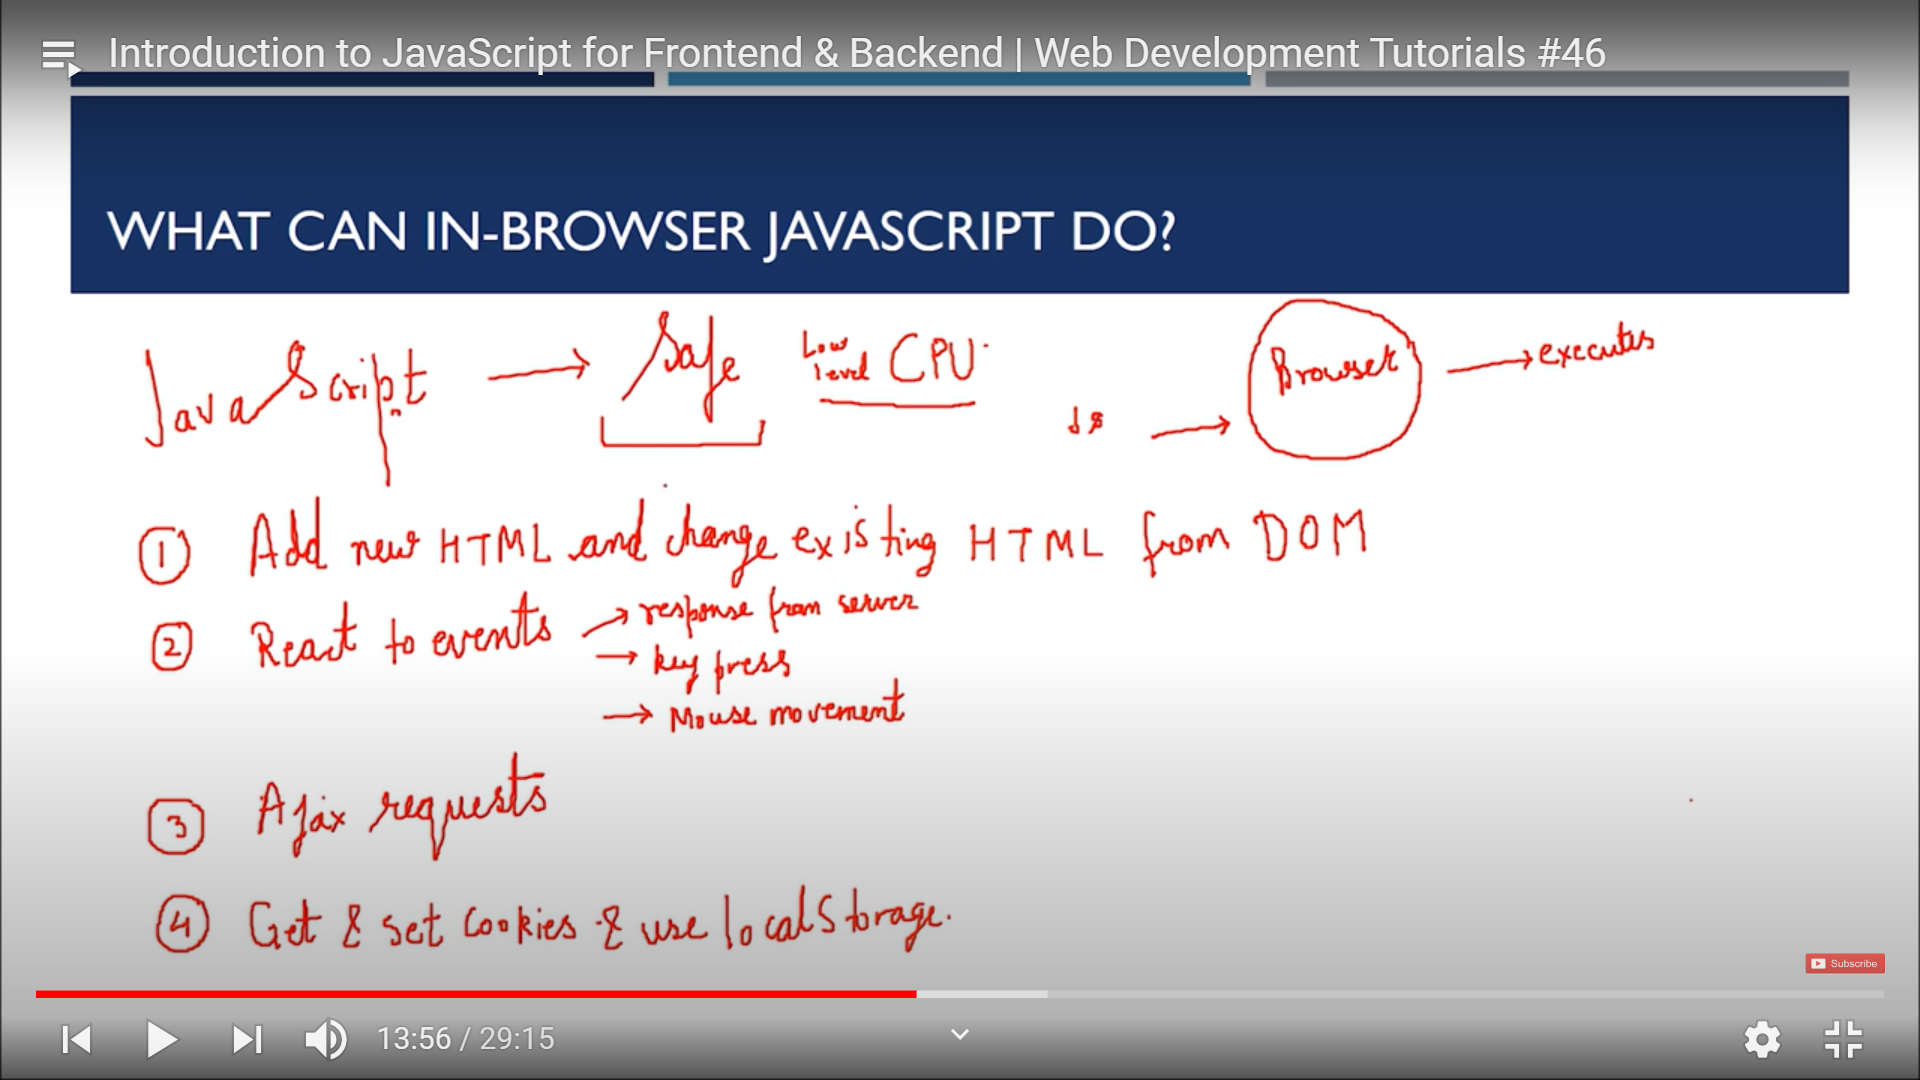 Introduction to JavaScript for Frontend & Backend | Web Development Tutorials #46
WHAT CAN IN-BROWSER JAVASCRIPT DO?
JavaScript → Safe Low level CPU
Js → Browser → executes
1 Add new HTML and change existing HTML from DOM
2 React to events → response from server
→ key press
→ Mouse movement
3 Ajax requests
4 Get & set cookies & use localStorage.
Subscribe
13:56 / 29:15